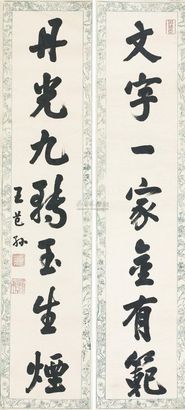 文字一家金有範
丹光九轉玉生煙
王芑孫